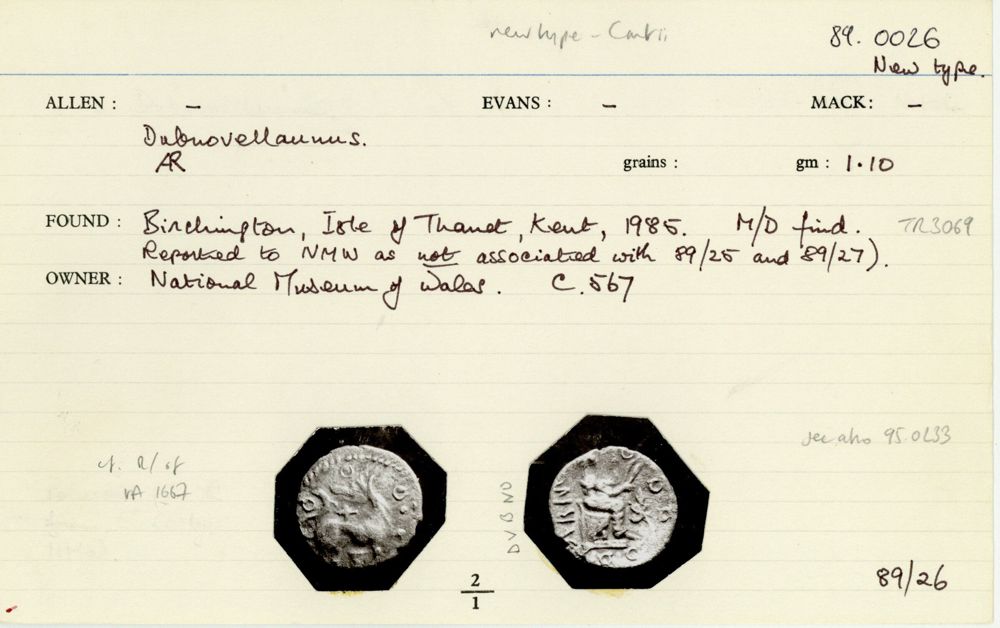 new type - Cantii
89.0026
New type.
ALLEN : – EVANS : – MACK: –
Dubnovellaunus.
AR grains : gm : 1.10
FOUND : Birchington, Isle of Thanet, Kent, 1985. M/D find. TR3069
Reported to NMW as not associated with 89/25 and 89/27).
OWNER : National Museum of Wales. C.567
see also 95.0233
cf. R/ of
VA 1667
DVBNO
2
1
89/26